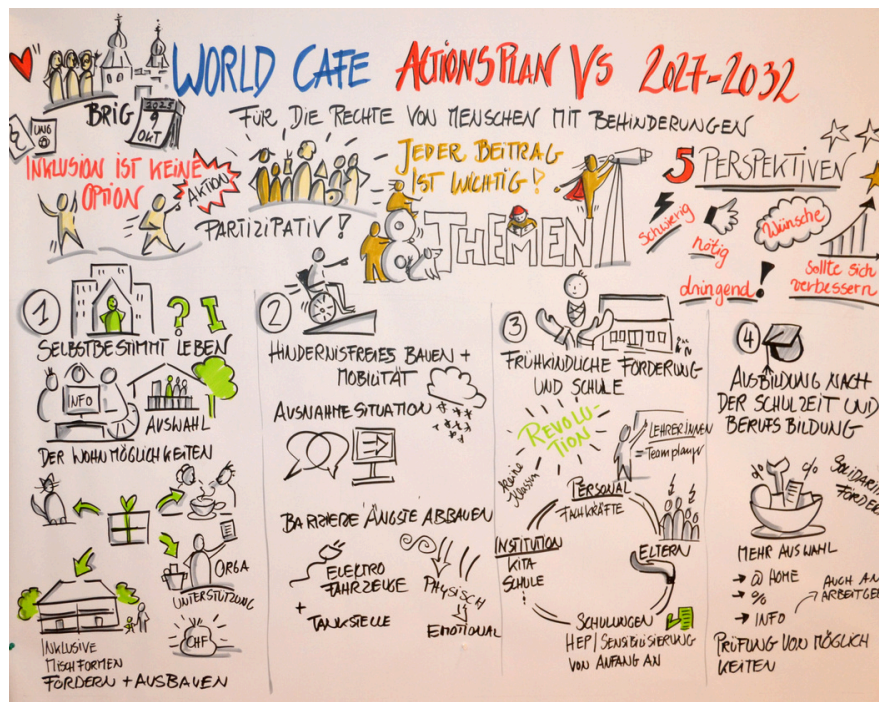 WORLD CAFE ACTIONSPLAN VS 2027-2032
BRIG
2025
9
OKT
FÜR DIE RECHTE VON MENSCHEN MIT BEHINDERUNGEN
UNO
INKLUSION IST KEINE
OPTION
AKTION
PARTIZIPATIV!
JEDER BEITRAG
IST WICHTIG!
8 THEMEN
5 PERSPEKTIVEN
Schwierig
nötig
Wünsche
dringend!
Sollte sich
verbessern
1
SELBSTBESTIMMT LEBEN
INFO
AUSWAHL
DER WOHNMÖGLICHKEITEN
ORGA
UNTERSTÜTZUNG
CHF
INKLUSIVE
MISCHFORMEN
FÖRDERN + AUSBAUEN
2
HINDERNISFREIES BAUEN +
MOBILITÄT
AUSNAHMESITUATION
BARRIERE ÄNGSTE ABBAUEN
ELEKTRO
FAHRZEUGE
+
TANKSTELLE
PHYSISCH
EMOTIONAL
3
FRÜHKINDLICHE FÖRDERUNG
UND SCHULE
REVOLU-
TION
LEHRERINNEN
=Teamplayer
kleine
Klassen
PERSONAL
FACHKRÄFTE
INSTITUTION
KITA
SCHULE
ELTERN
SCHULUNGEN
HEP/SENSIBILISIERUNG
VON ANFANG AN
4
AUSBILDUNG NACH
DER SCHULZEIT UND
BERUFSBILDUNG
% %
MEHR AUSWAHL
→ @ HOME
→ %
→ INFO
AUCH
PRÜFUNG VON MÖGLICH
KEITEN